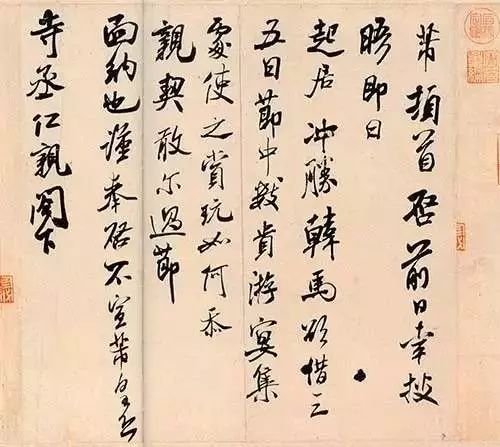 芾頓首启前日幸披
晤即日
起居冲勝韓馬欲借三
五日節中數貴游宴集
處使之賞玩如何忝
親契敢尔過節
面納也謹奉啓不宣芾皇恐
寺丞仁親閣下